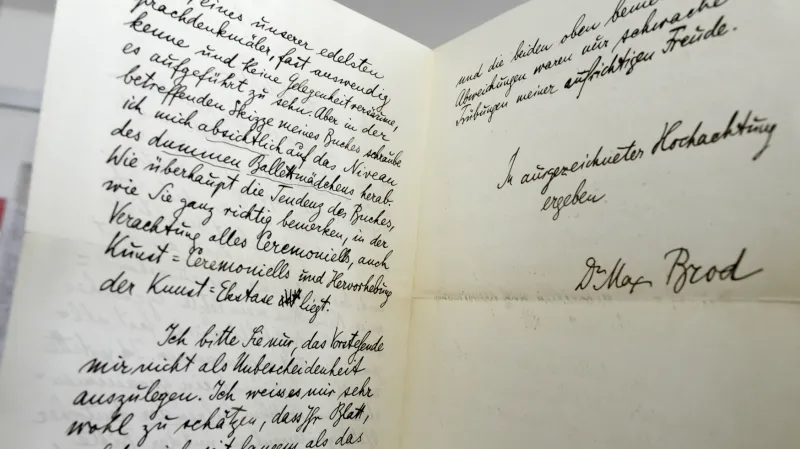 eines unserer edelsten
Sprachdenkmäler, fast auswendig
kenne und keine Gelegenheit versäume,
es aufgeführt zu sehn. Aber in der
betreffenden Skizze meines Buches schraube
ich mich absichtlich auf das Niveau
des dummen Balletmädchens herab.
Wie überhaupt die Tendenz des Buches,
wie Sie ganz richtig bemerken, in der
Verachtung alles Ceremoniells, auch
Kunst=Ceremoniells und Hervorhebung
der Kunst=Ekstase liegt.
Ich bitte Sie nur, das Vorstehende
mir nicht als Unbescheidenheit
auszulegen. Ich weiss es mir sehr
wohl zu schätzen, dass Ihr Blatt,
seit langem als das
und die beiden oben
Abweichungen waren nur schwache
Trübungen meiner aufrichtigen Freude.
In ausgezeichneter Hochachtung
ergeben
Dr Max Brod